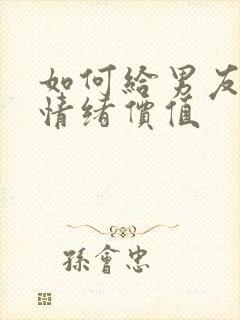 如何給男友
情绪價值
孫會忠